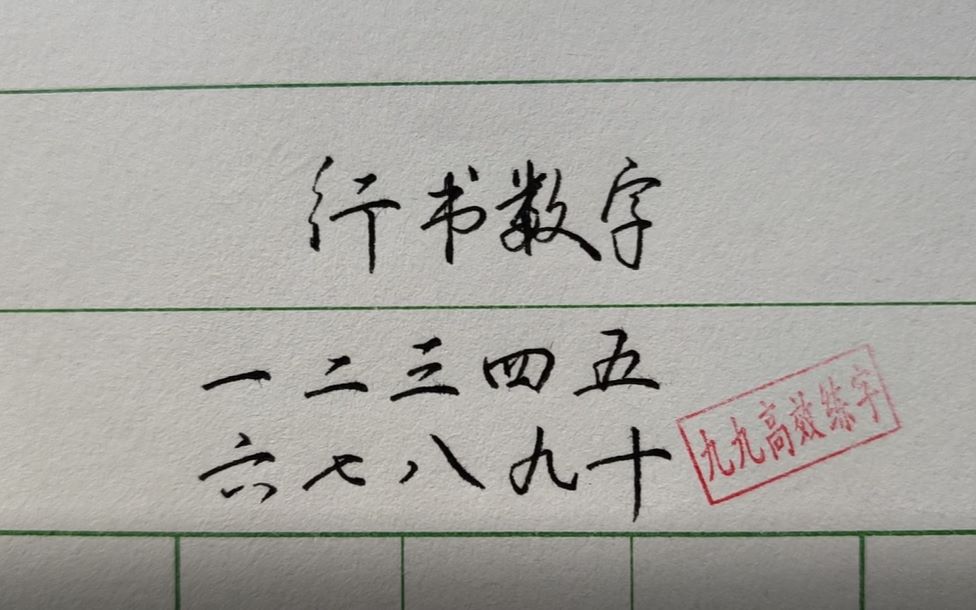 行书数字
一二三四五
六七八九十
九九高效练字